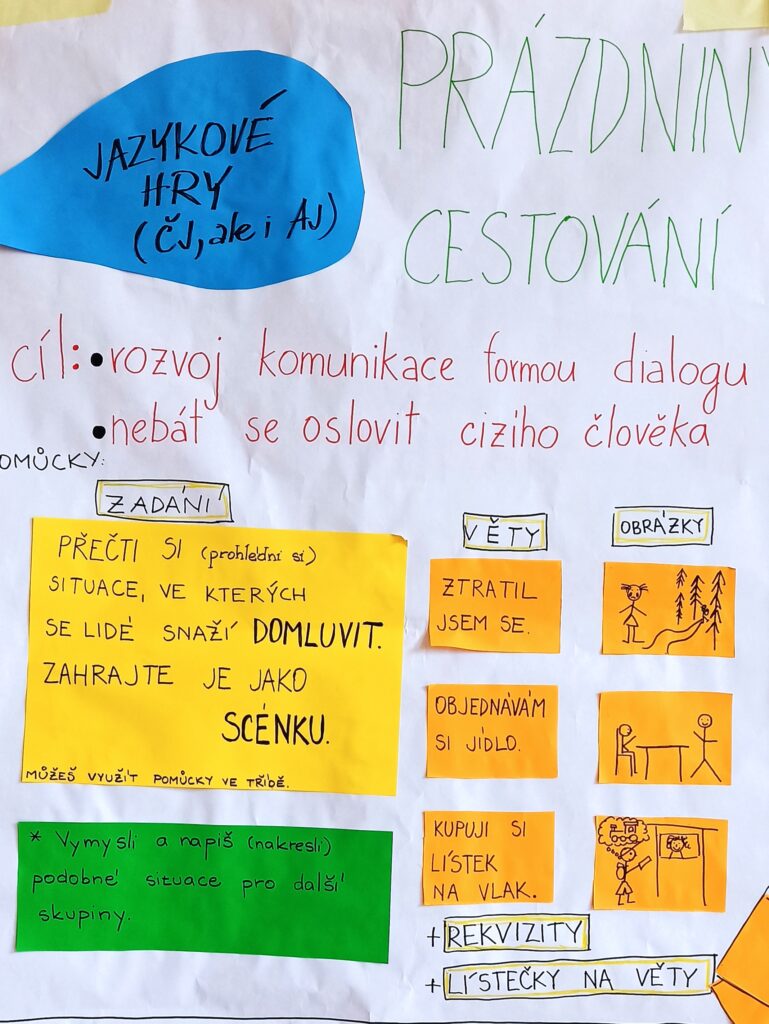 JAZYKOVÉ
HRY
(ČJ, ale i AJ)
PRÁZDNINY
CESTOVÁNÍ
cíl: • rozvoj komunikace formou dialogu
• nebát se oslovit cizího člověka
OMŮCKY:
ZADÁNÍ
PŘEČTI SI (prohlédni si)
SITUACE, VE KTERÝCH
SE LIDÉ SNAŽÍ DOMLUVIT.
ZAHRAJTE JE JAKO
SCÉNKU.
MŮŽEŠ VYUŽÍT POMŮCKY VE TŘÍDĚ.
* Vymysli a napiš (nakresli)
podobné situace pro další
skupiny.
VĚTY
ZTRATIL
JSEM SE.
OBJEDNÁVÁM
SI JÍDLO.
KUPUJI SI
LÍSTEK
NA VLAK.
OBRÁZKY
+ REKVIZITY
+ LÍSTEČKY NA VĚTY